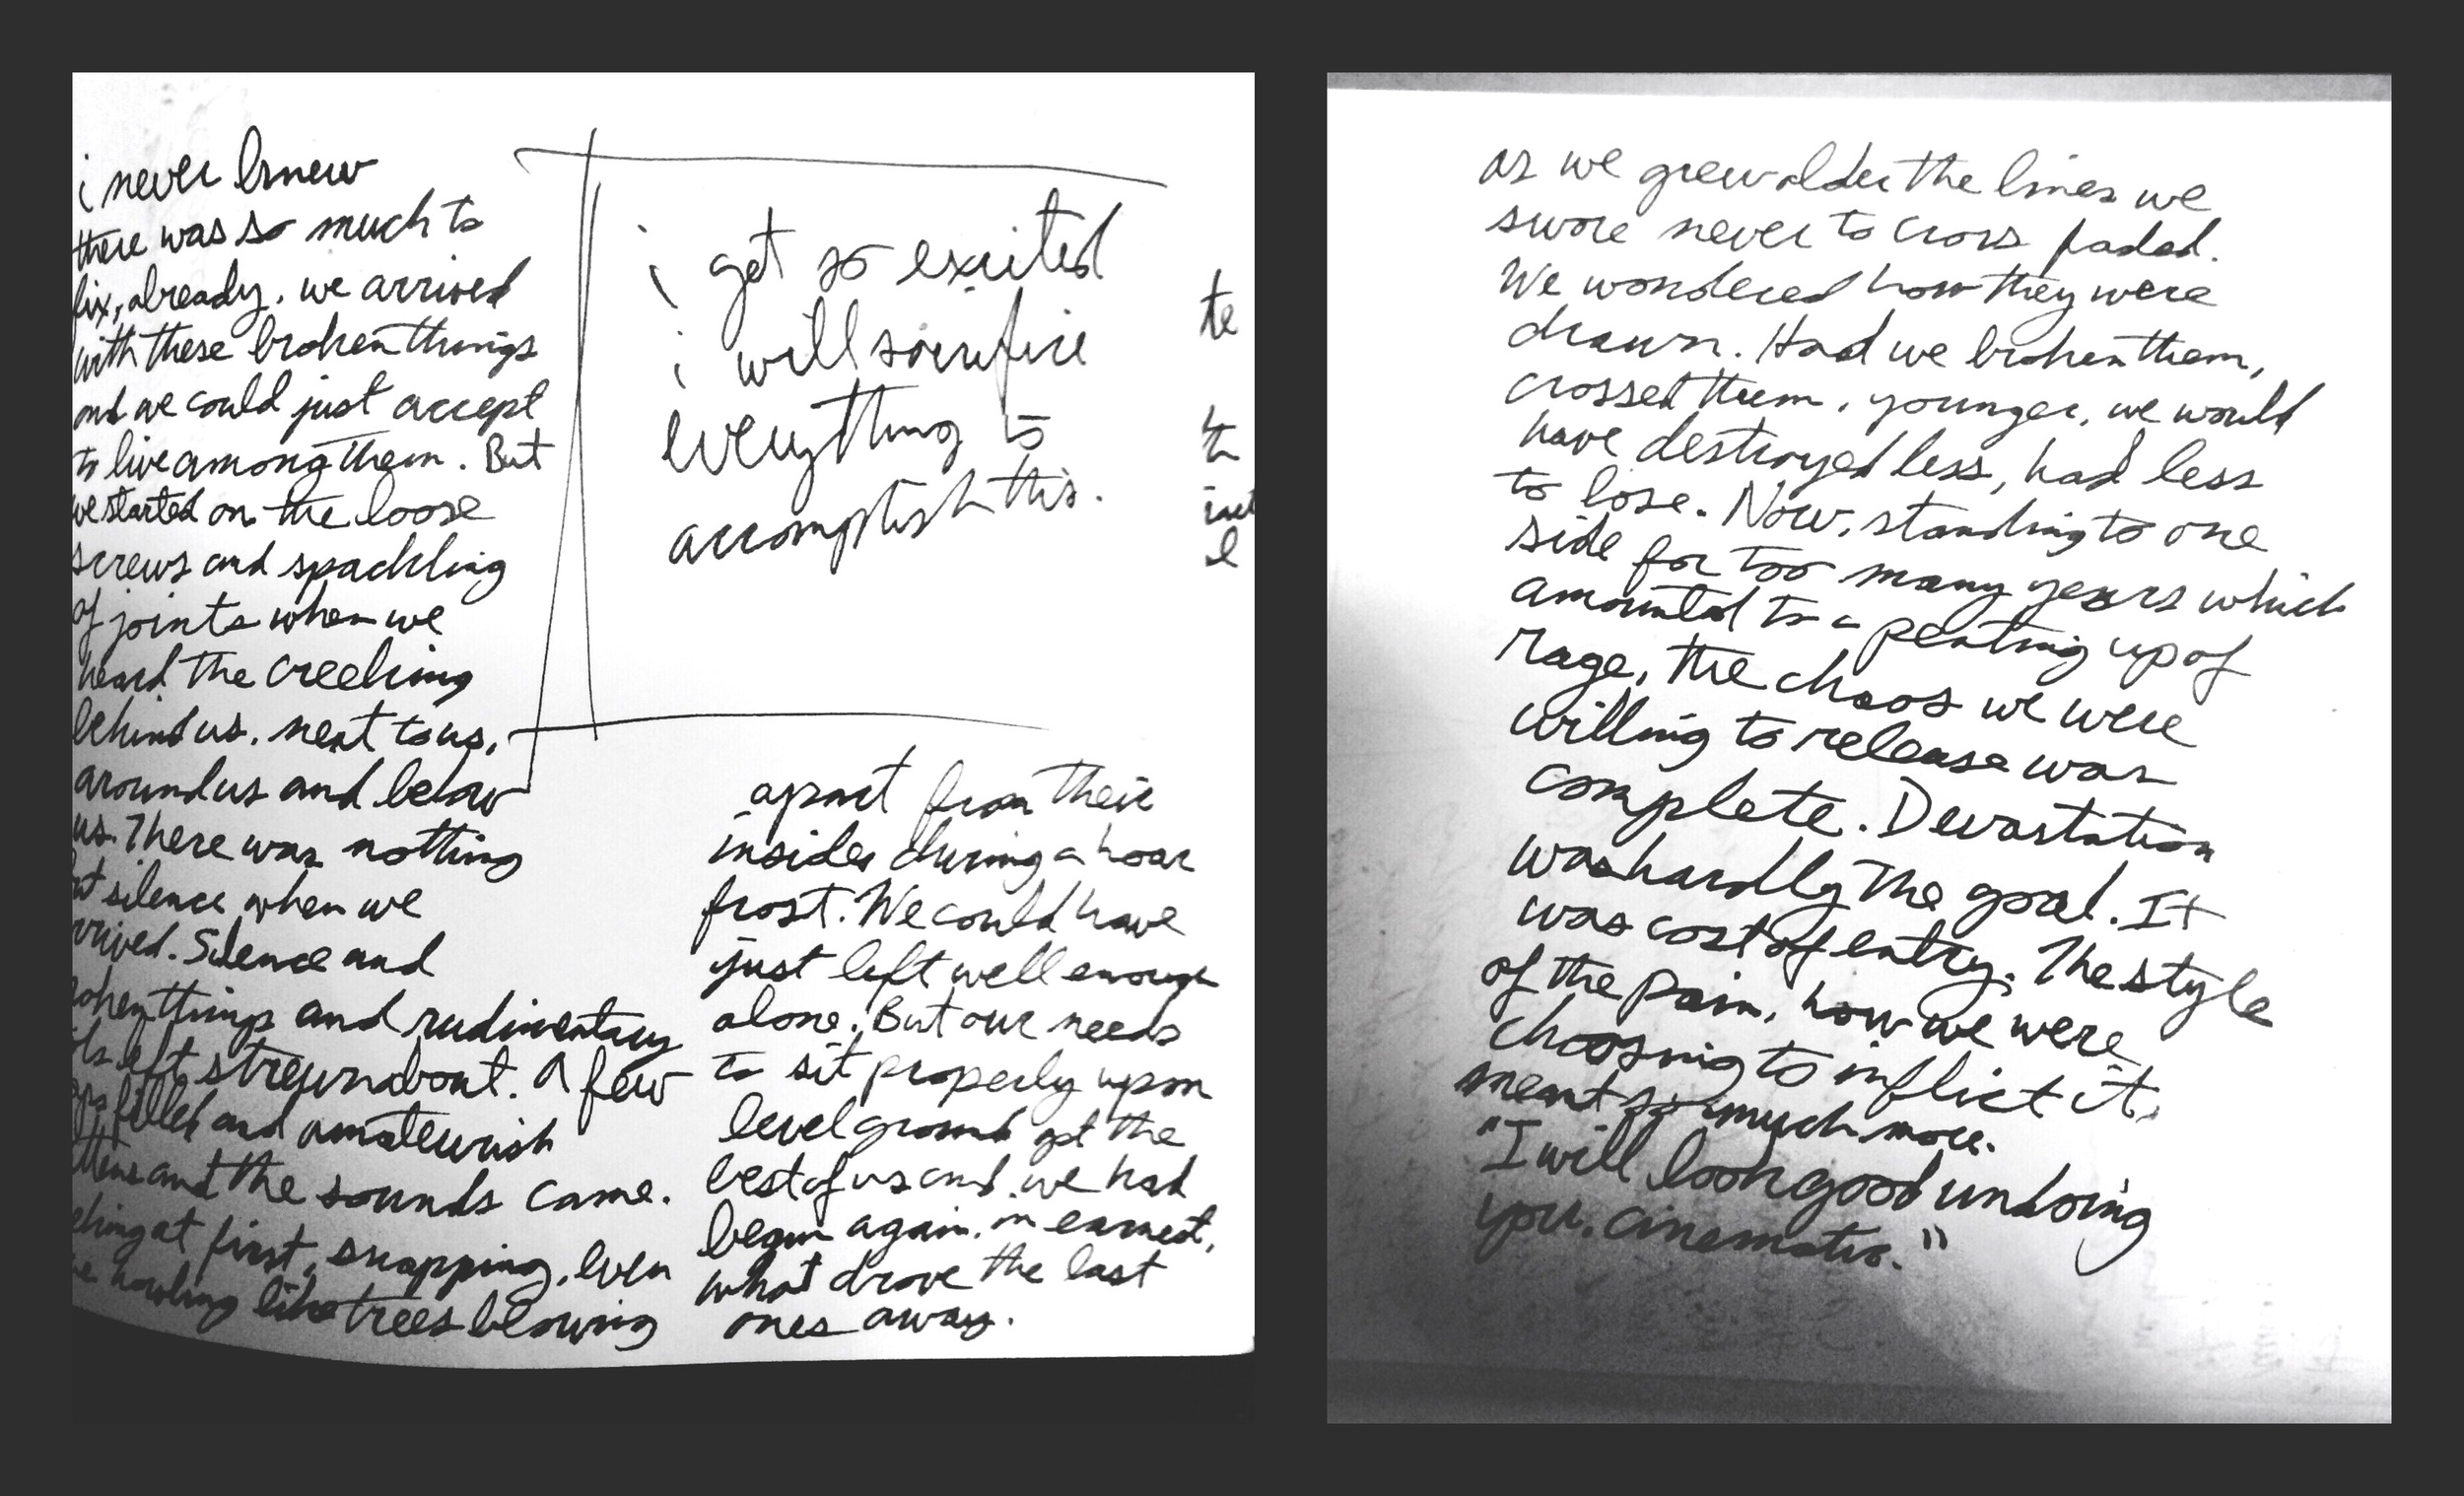 i never knew
there was so much to
fix, already, we arrived
with these broken things
and we could just accept
to live among them. But
we started on the loose
screws and spackling
of joints when we
heard the creeking
behind us, next to us,
around us and below
us. There was nothing
silence when we
Silence and
things and rudimentary
left strewn about. A few
filled and amateurish
and the sounds came.
at first, snapping, even
howling like trees blowing
i get so excited
i will sacrifice
everything to
accomplish this.
apart from their
insides during a hoar
frost. We could have
just left well enough
alone. But our needs
to sit properly upon
level ground got the
best of us and we had
begun again, in earnest,
what drove the last
ones away.
te
th
l
as we grew older the lines we
swore never to cross faded.
We wondered how they were
drawn. Had we broken them,
crossed them, younger, we would
have destroyed less, had less
to lose. Now, standing to one
side for too many years which
amounted to a penting up of
rage, the chaos we were
willing to release was
complete. Devastation
was hardly the goal. It
was cost of entry. The style
of the pain, how we were
choosing to inflict it,
meant so much more.
"I will look good undoing
you, cinematic."